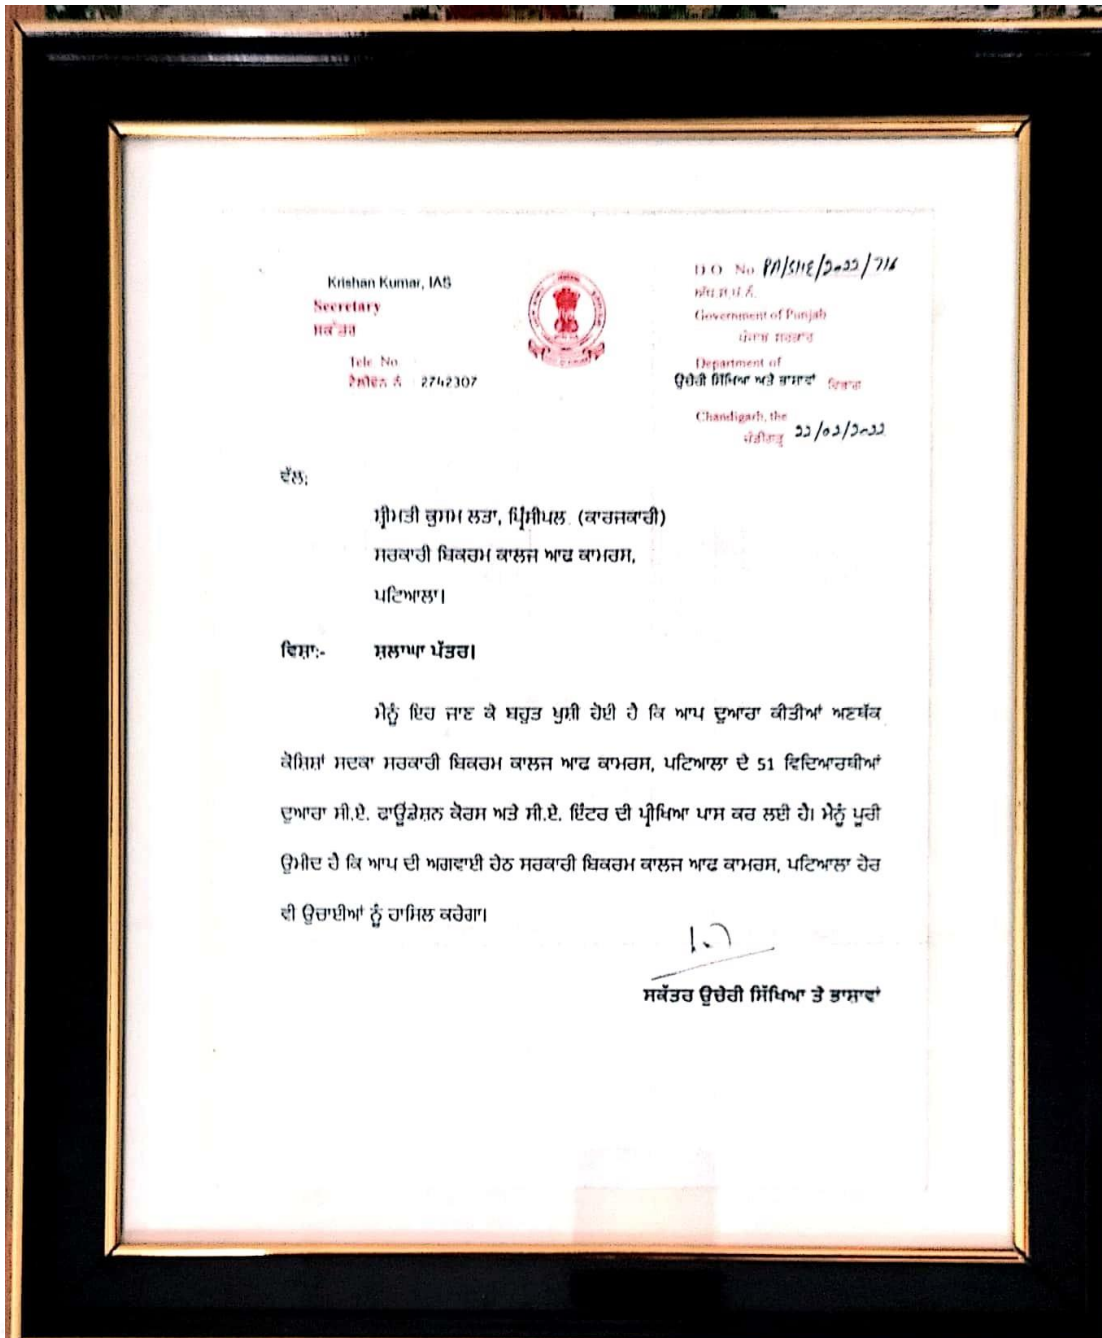 Krishan Kumar, IAS
Secretary
ਸਕੱਤਰ
Tele No
ਟੈਲੀਫੋਨ ਨੰ : 2742307
D.O No PA/SHE/2022/716
ਅੱਧ.ਸ.ਪ.ਨੰ.
Government of Punjab
ਪੰਜਾਬ ਸਰਕਾਰ
Department of
ਉਚੇਰੀ ਸਿੱਖਿਆ ਅਤੇ ਭਾਸ਼ਾਵਾਂ ਵਿਭਾਗ
Chandigarh, the
ਚੰਡੀਗੜ੍ਹ 22/02/2022
ਵੱਲ:
ਸ੍ਰੀਮਤੀ ਕੁਸਮ ਲਤਾ, ਪ੍ਰਿੰਸੀਪਲ (ਕਾਰਜਕਾਰੀ)
ਸਰਕਾਰੀ ਬਿਕਰਮ ਕਾਲਜ ਆਫ ਕਾਮਰਸ,
ਪਟਿਆਲਾ।
ਵਿਸ਼ਾ:- ਸ਼ਲਾਘਾ ਪੱਤਰ।
ਮੈਨੂੰ ਇਹ ਜਾਣ ਕੇ ਬਹੁਤ ਖੁਸ਼ੀ ਹੋਈ ਹੈ ਕਿ ਆਪ ਦੁਆਰਾ ਕੀਤੀਆਂ ਅਣਥੱਕ
ਕੋਸ਼ਿਸ਼ਾਂ ਸਦਕਾ ਸਰਕਾਰੀ ਬਿਕਰਮ ਕਾਲਜ ਆਫ ਕਾਮਰਸ, ਪਟਿਆਲਾ ਦੇ 51 ਵਿਦਿਆਰਥੀਆਂ
ਦੁਆਰਾ ਸੀ.ਏ. ਫਾਊਂਡੇਸ਼ਨ ਕੋਰਸ ਅਤੇ ਸੀ.ਏ. ਇੰਟਰ ਦੀ ਪ੍ਰੀਖਿਆ ਪਾਸ ਕਰ ਲਈ ਹੈ। ਮੈਨੂੰ ਪੂਰੀ
ਉਮੀਦ ਹੈ ਕਿ ਆਪ ਦੀ ਅਗਵਾਈ ਹੇਠ ਸਰਕਾਰੀ ਬਿਕਰਮ ਕਾਲਜ ਆਫ ਕਾਮਰਸ, ਪਟਿਆਲਾ ਹੋਰ
ਵੀ ਉਚਾਈਆਂ ਨੂੰ ਹਾਸਿਲ ਕਰੇਗਾ।
ਸਕੱਤਰ ਉਚੇਰੀ ਸਿੱਖਿਆ ਤੇ ਭਾਸ਼ਾਵਾਂ